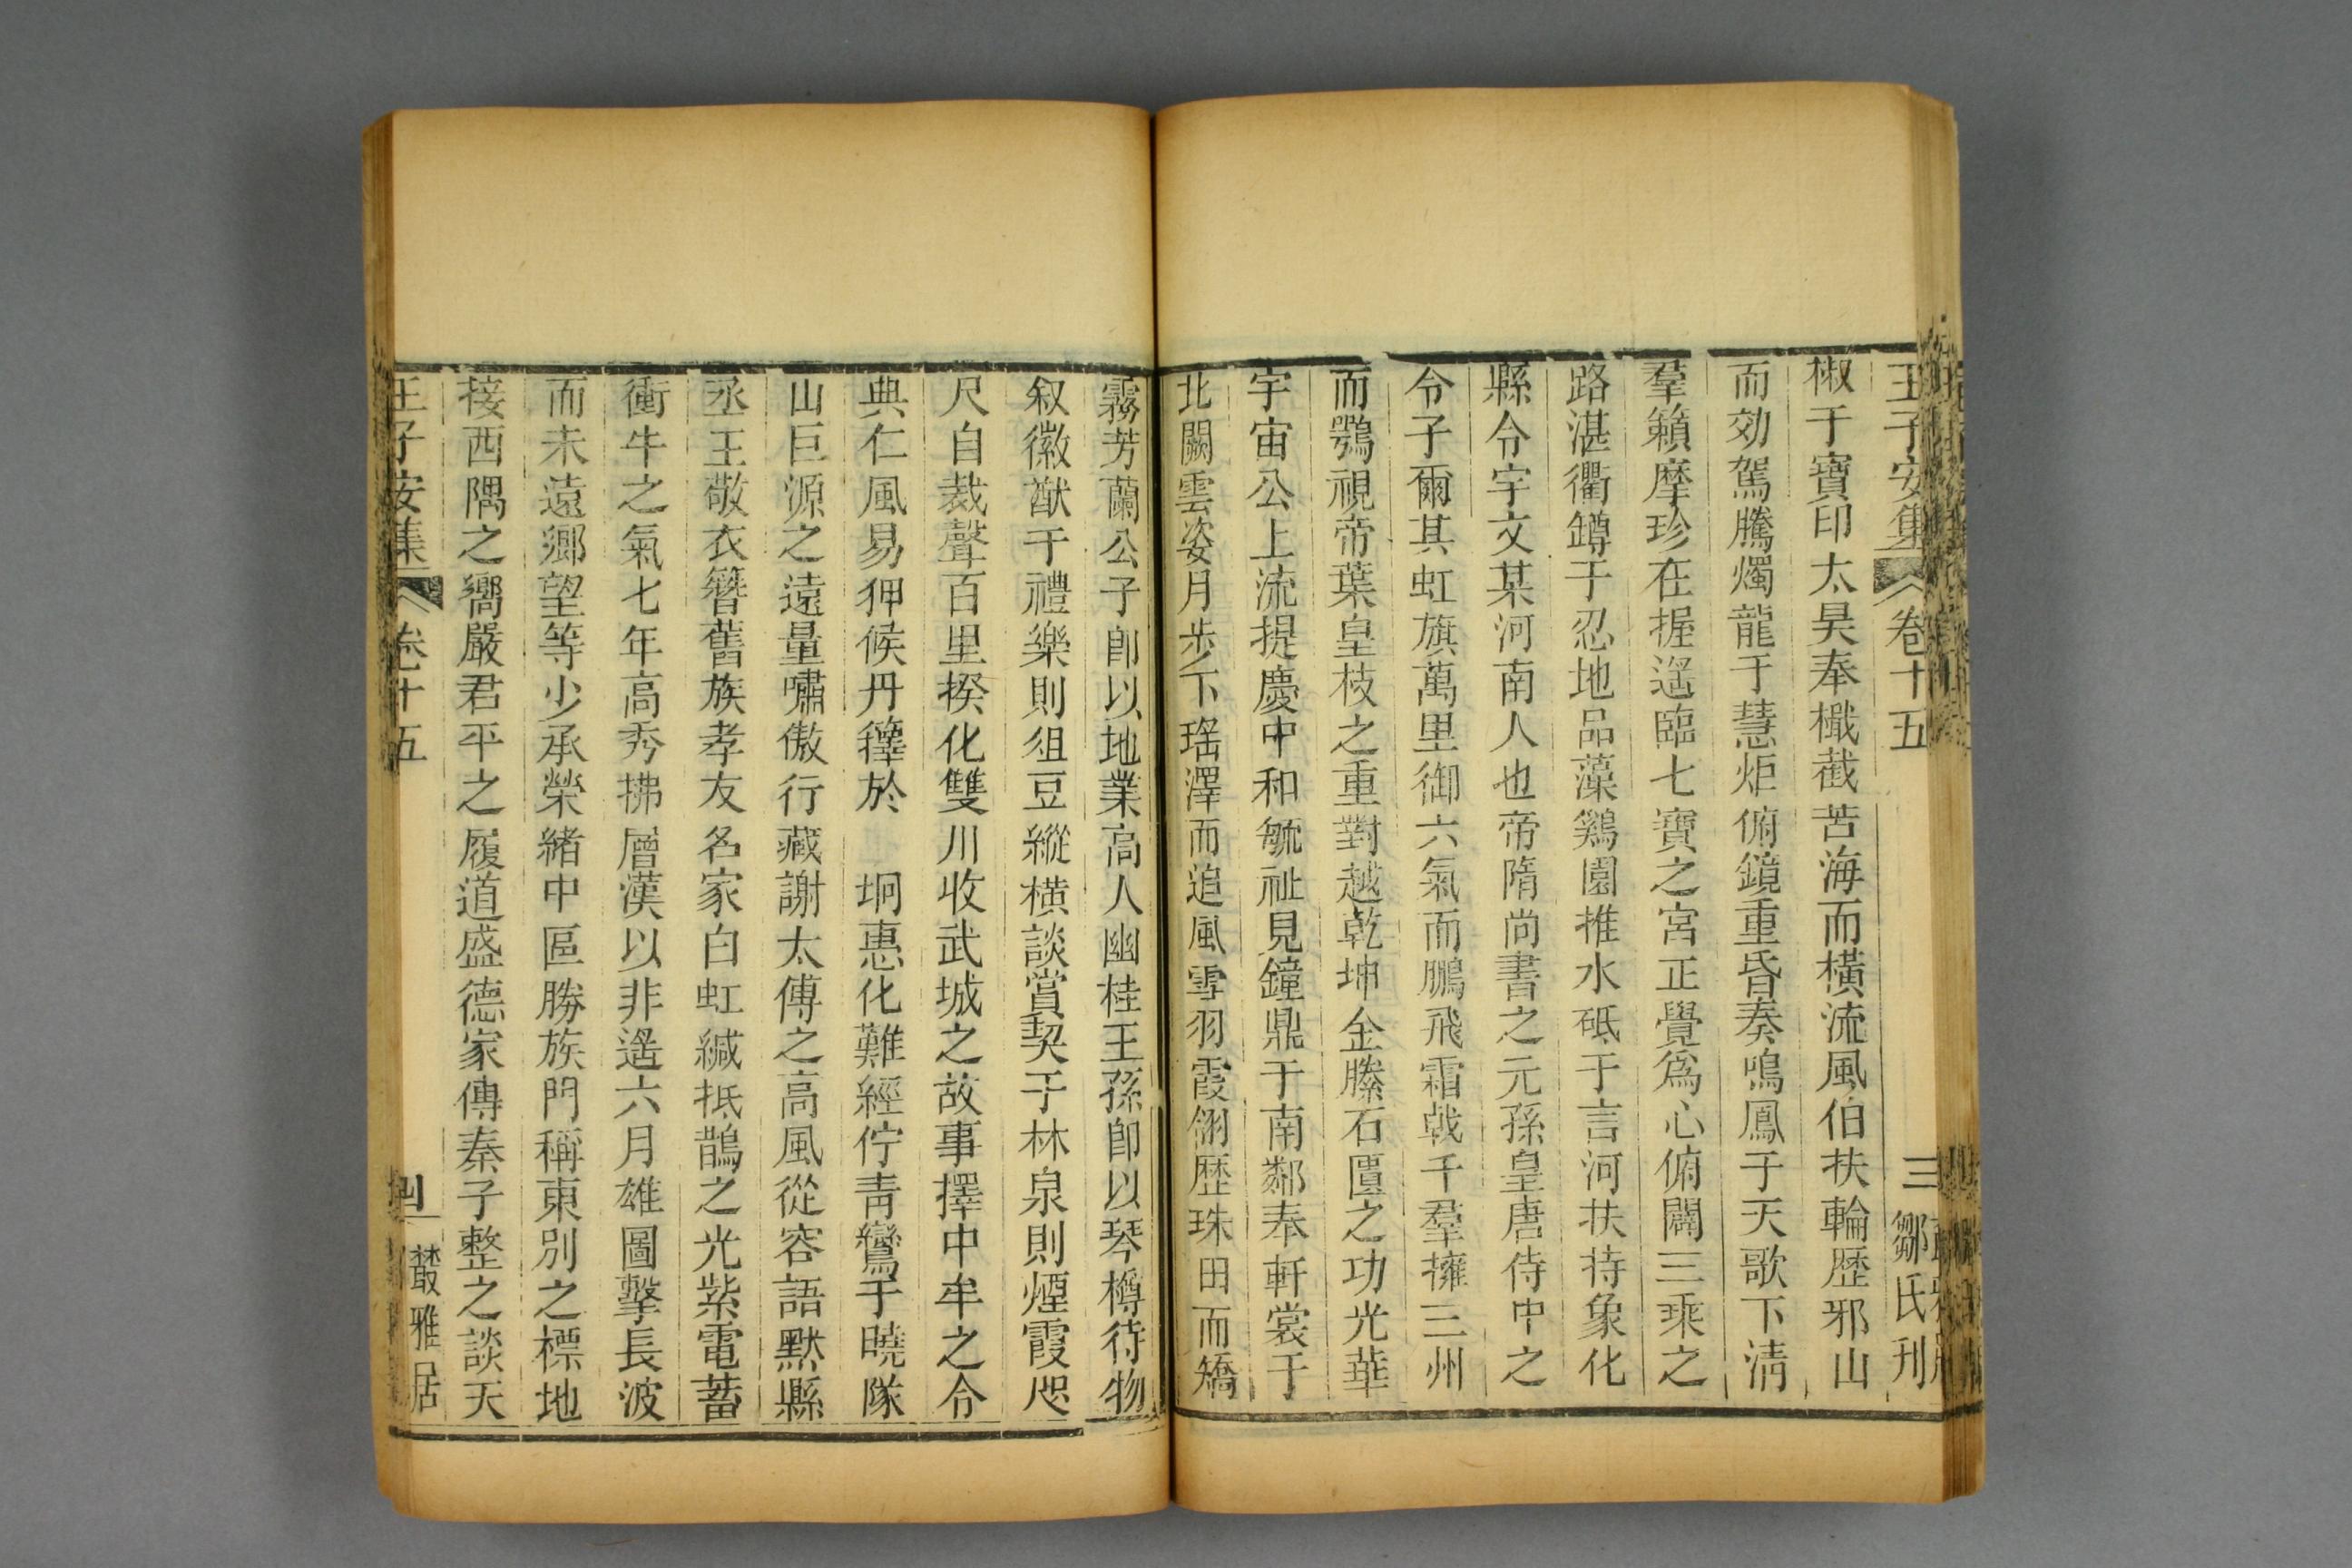 王子安集 卷十五 三 鄒氏刊
椒于寶印太昊奉檝截苦海而橫流風伯扶輪歷邪山
而効駕騰燭龍于慧炬俯鏡重昏奏鳴鳳于天歌下淸
羣籟摩珍在握遥臨七寶之宮正覺爲心俯闢三乘之
路湛衢罇于忍地品藻鷄園推水砥于言河扶持象化
縣令宇文某河南人也帝隋尚書之元孫皇唐侍中之
令子爾其虹旗萬里御六氣而鵬飛霜戟千羣擁三州
而鶚視帝葉皇枝之重對越乾坤金縢石匱之功光華
宇宙公上流提慶中和毓祉見鐘鼎于南鄰奉軒裳于
北闕雲姿月步下瑤澤而追風雪羽霞翎歷珠田而矯
霧芳蘭公子卽以地業高人幽桂王孫卽以琴樽待物
叙徽猷于禮樂則俎豆縱橫談賞契于林泉則煙霞咫
尺自裁聲百里揆化雙川收武城之故事擇中牟之令
典仁風易狎候丹籜於 坰惠化難經佇靑鸞于曉隊
山巨源之遠量嘯傲行藏謝太傅之高風從容語默縣
丞王敬衣簪舊族孝友名家白虹緘抵鵲之光紫電蓄
衝牛之氣七年高秀拂層漢以非遥六月雄圖擊長波
而未遠鄉望等少承榮緒中區勝族門稱東別之標地
接西隅之嚮嚴君平之履道盛德家傳秦子整之談天
王子安集 卷十五 四 叢雅居